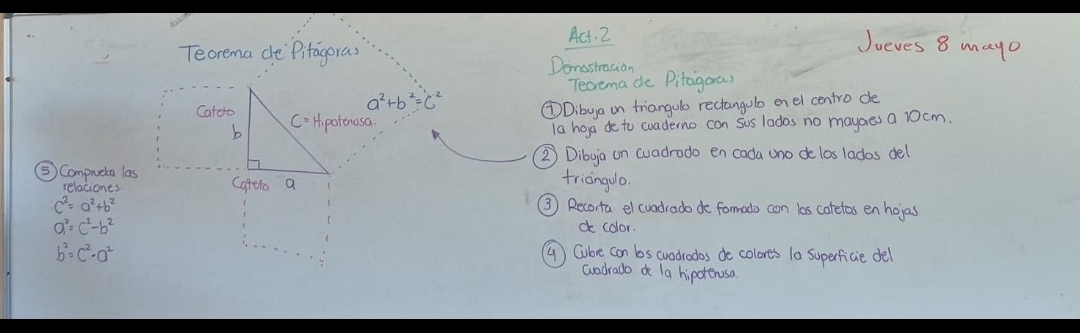 Teorema de Pitágoras
Cateto
b
C = Hipotenusa.
a²+b²=c²
Cateto a
⑤ Comprueba las
relaciones
c²= a²+b²
a²= c²-b²
b²= c²-a²
Act. 2
Demostración
Teorema de Pitágoras
Jueves 8 mayo
① Dibuja un triangulo rectangulo en el centro de
la hoja de tu cuaderno con sus lados no mayores a 10cm.
② Dibuja un cuadrado en cada uno de los lados del
triángulo.
③ Recorta el cuadrado de formado con los catetos en hojas
de color.
④ Cubre con los cuadrados de colores la superficie del
cuadrado de la hipotenusa.